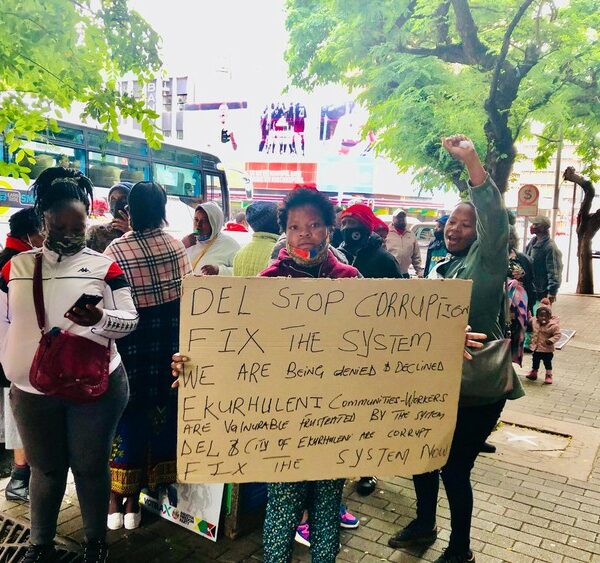 DEL STOP CORRUPTION
FIX THE SYSTEM
WE ARE BEING DENIED & DECLINED
EKURHULENI COMMUNITIES-WORKERS
ARE VALNURABLE FRUSTRATED BY THE SYSTEM
DEL & CITY OF EKURHULENI ARE CORRUPT
FIX THE SYSTEM NOW